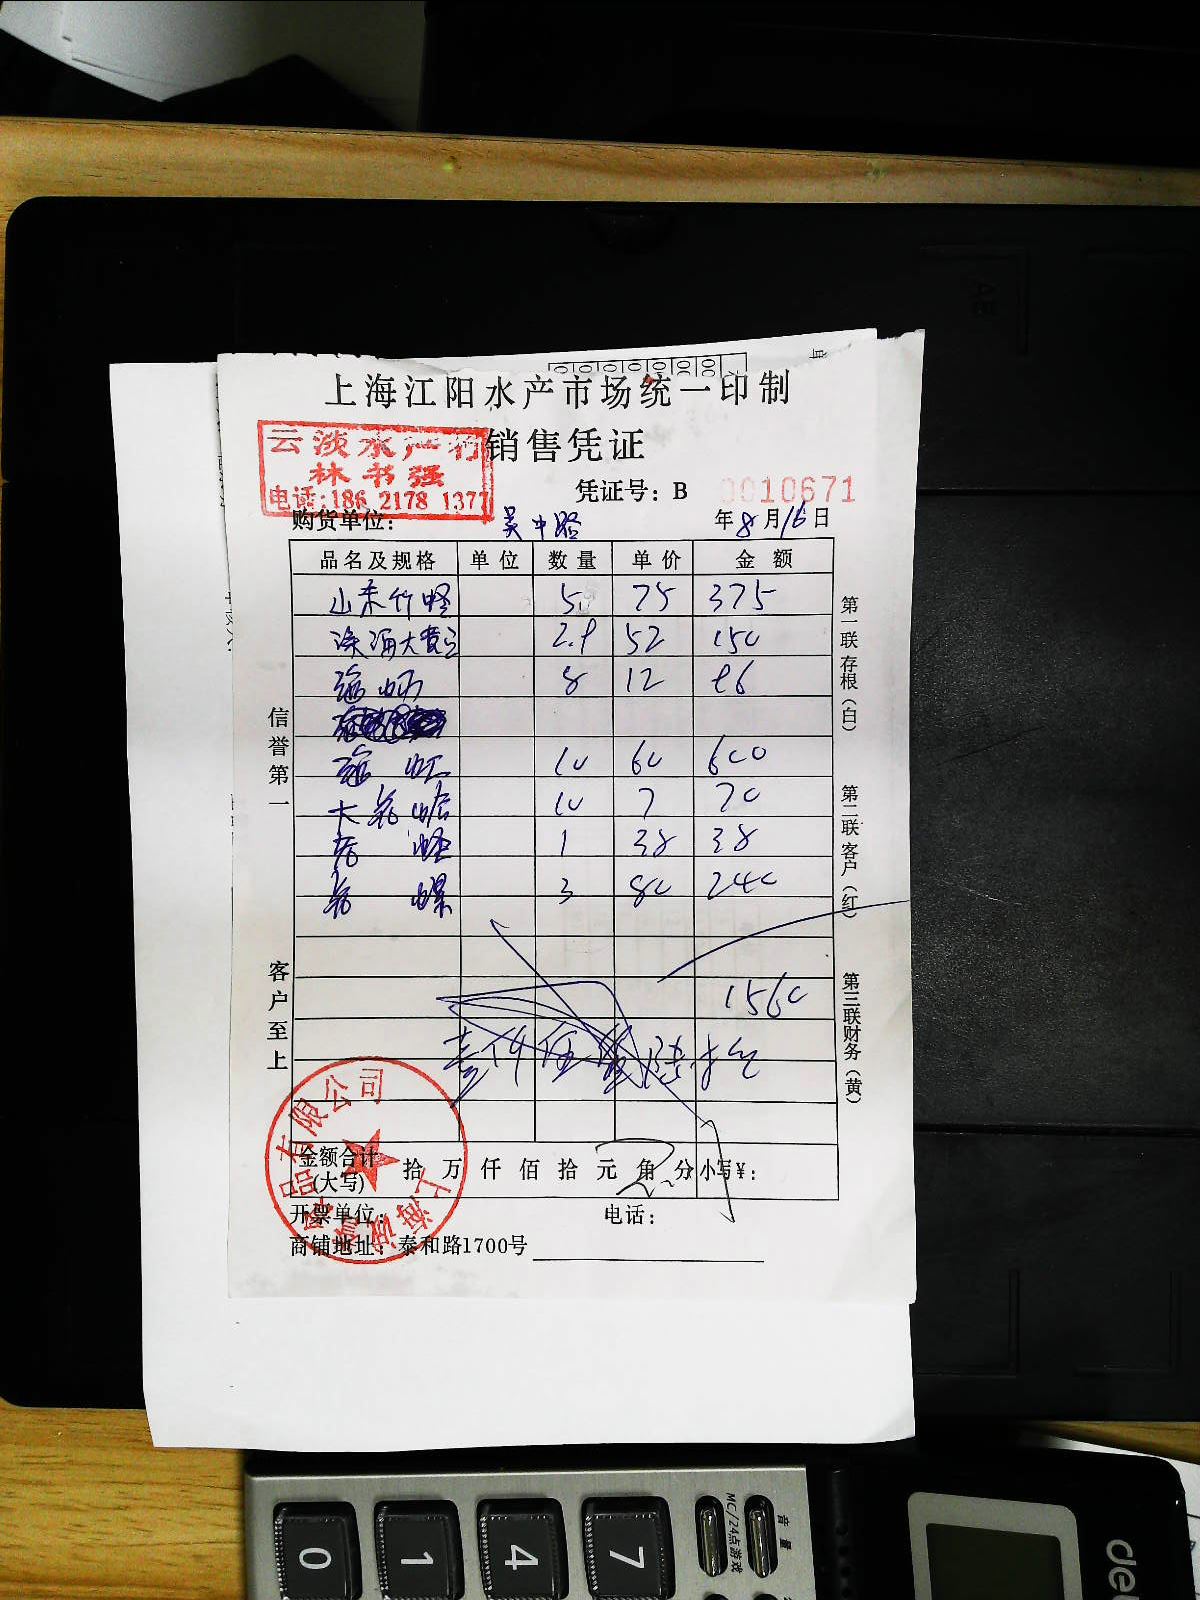 上海江阳水产市场统一印制
销售凭证
云淡水产行
林书强
电话:186 2178 1377
凭证号：B 0010671
购货单位： 吴中路 年8月16日
品名及规格 单位 数量 单价 金额
山东竹蛏 5 75 375
深海大黄 2.9 52 150
8 12 96
10 60 600
大花蛤 10 7 70
蛏 1 38 38
花螺 3 80 240
1560
壹仟伍佰陆拾元
金额合计
(大写) 拾 万 仟 佰 拾 元 角 分 小写¥：
开票单位： 电话：
商铺地址：泰和路1700号
信誉第一
客户至上
第一联存根（白）
第二联客户（红）
第三联财务（黄）
上海诚 品有限公司
MC/24点游戏
音量
0
1
4
7
de